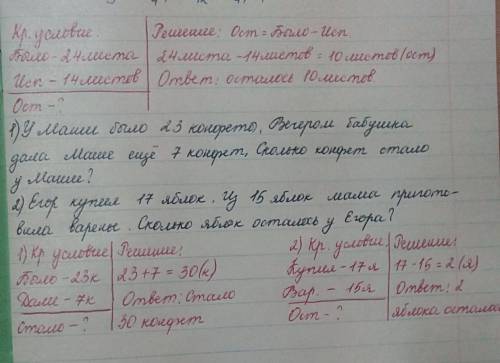 Кр. условие: Решение: Ост = Было - Исп.
Было - 24 листа 24 листа - 14 листов = 10 листов (ост)
Исп - 14 листов Ответ: осталось 10 листов.
Ост - ?
1) У Маши было 23 конфеты, Вечером бабушка
дала Маше ещё 7 конфет, Сколько конфет стало
у Маши?
2) Егор купил 17 яблок. Из 15 яблок мама пригото-
вила варенье. Сколько яблок осталось у Егора?
1) Кр условие: Решение:
Было - 23к 23 + 7 = 30 (к)
Дали - 7к Ответ: Стало
Стало - ? 30 конфет
2) Кр. условие: Решение:
Купил - 17я 17 - 15 = 2 (я)
Вар. - 15я Ответ: 2
Ост - ? яблока осталос